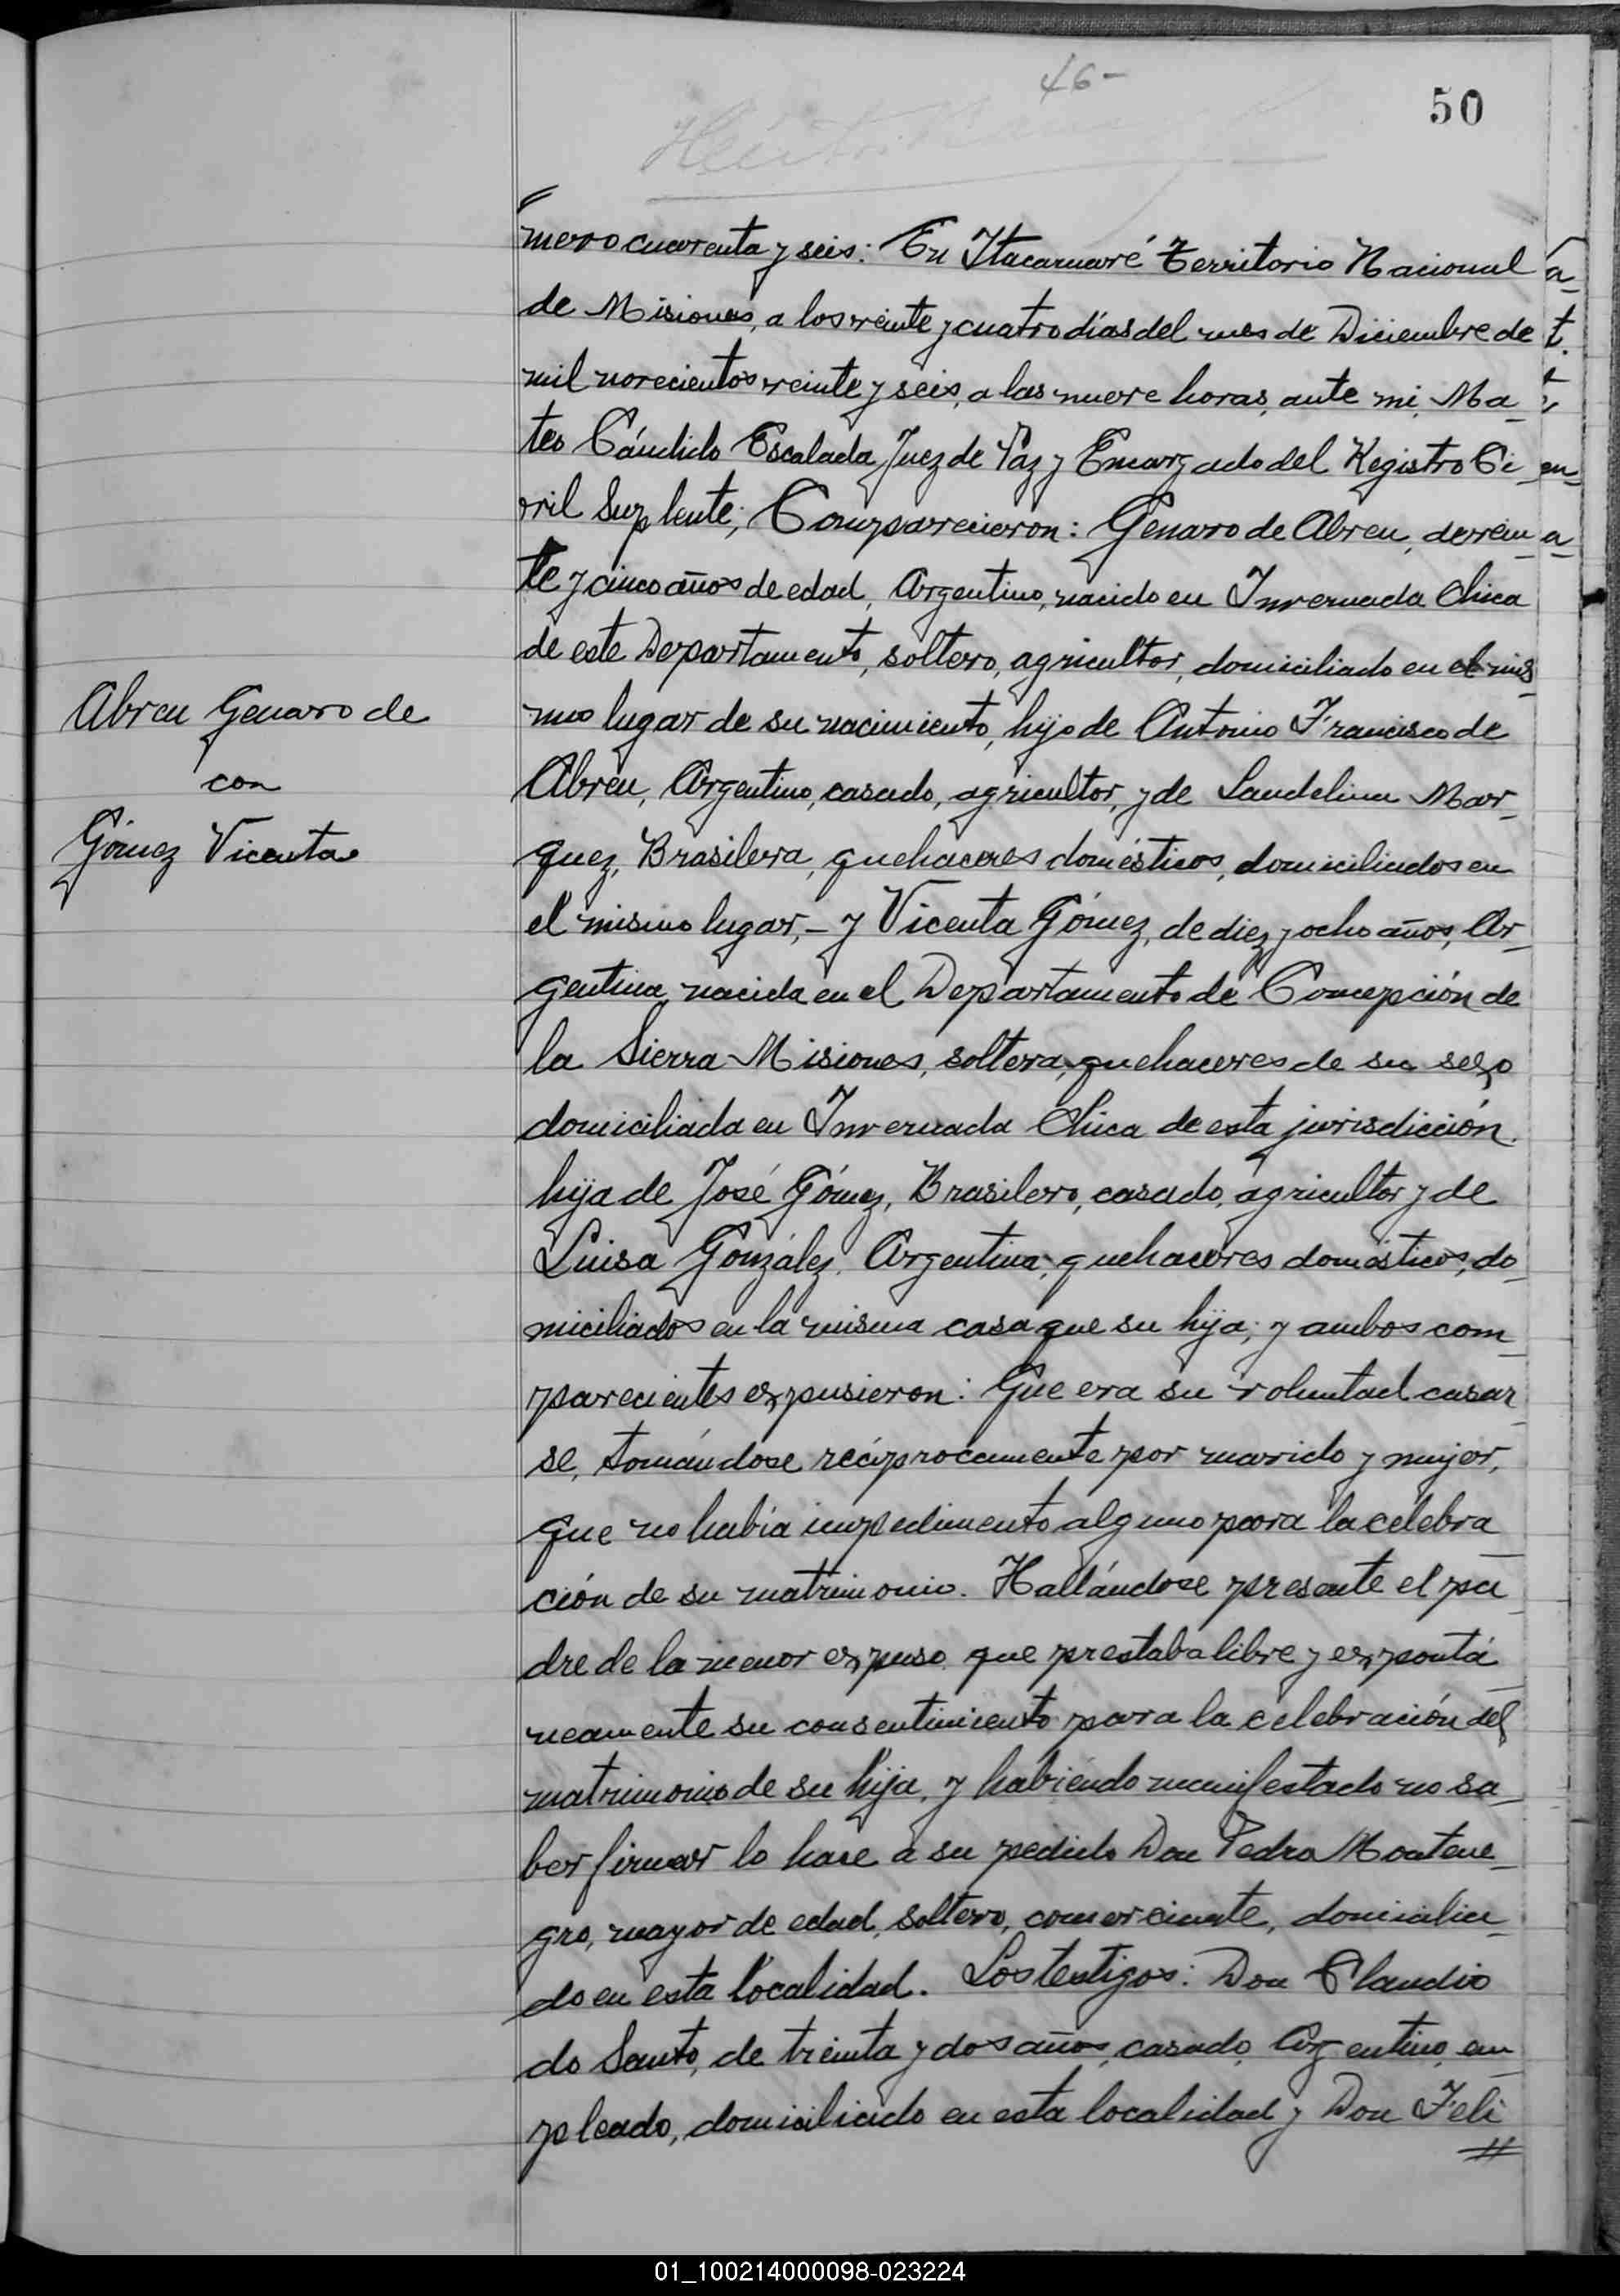 46-
50
mero cuarenta y seis: En Itacaruaré Territorio Nacional
de Misiones, a los veinte y cuatro días del mes de Diciembre de
mil novecientos veinte y seis, a las nueve horas, ante mi, Ma-
teo Cándido Escalada Juez de Paz y Encargado del Registro Ci-
vil Suplente; Comparecieron: Genaro de Abreu, de vein-
te y cinco años de edad, Argentino, nacido en Invernada Chica
de este Departamento, soltero, agricultor, domiciliado en el mis-
mo lugar de su nacimiento, hijo de Antonio Francisco de
Abreu, Argentino, casado, agricultor, y de Laudelina Mar-
quez, Brasilera, quehaceres domésticos, domiciliados en
el mismo lugar,- y Vicenta Gómez, de diez y ocho años, Ar-
gentina, nacida en el Departamento de Concepción de
la Sierra Misiones, soltera, quehaceres de su sexo
domiciliada en Invernada Chica de esta jurisdicción.
hija de José Gómez, Brasilero, casado, agricultor y de
Luisa González, Argentina, quehaceres domésticos, do-
miciliados en la misma casa que su hija; y ambos com-
parecientes expusieron: Que era su voluntad casar-
se, tomándose recíprocamente por marido y mujer,
que no había impedimento alguno para la celebra-
ción de su matrimonio. Hallándose presente el pa-
dre de la menor expuso que prestaba libre y expontá-
neamente su consentimiento para la celebración del
matrimonio de su hija, y habiendo manifestado no sa-
ber firmar lo hace a su pedido Don Pedro Montene-
gro, mayor de edad, soltero, comerciante, domicilia-
do en esta localidad. Los testigos: Don Claudio
do Santo, de treinta y dos años, casado, Argentino, em-
pleado, domiciliado en esta localidad y Don Feli
Abreu Genaro de
con
Gómez Vicenta
01_100214000098-023224